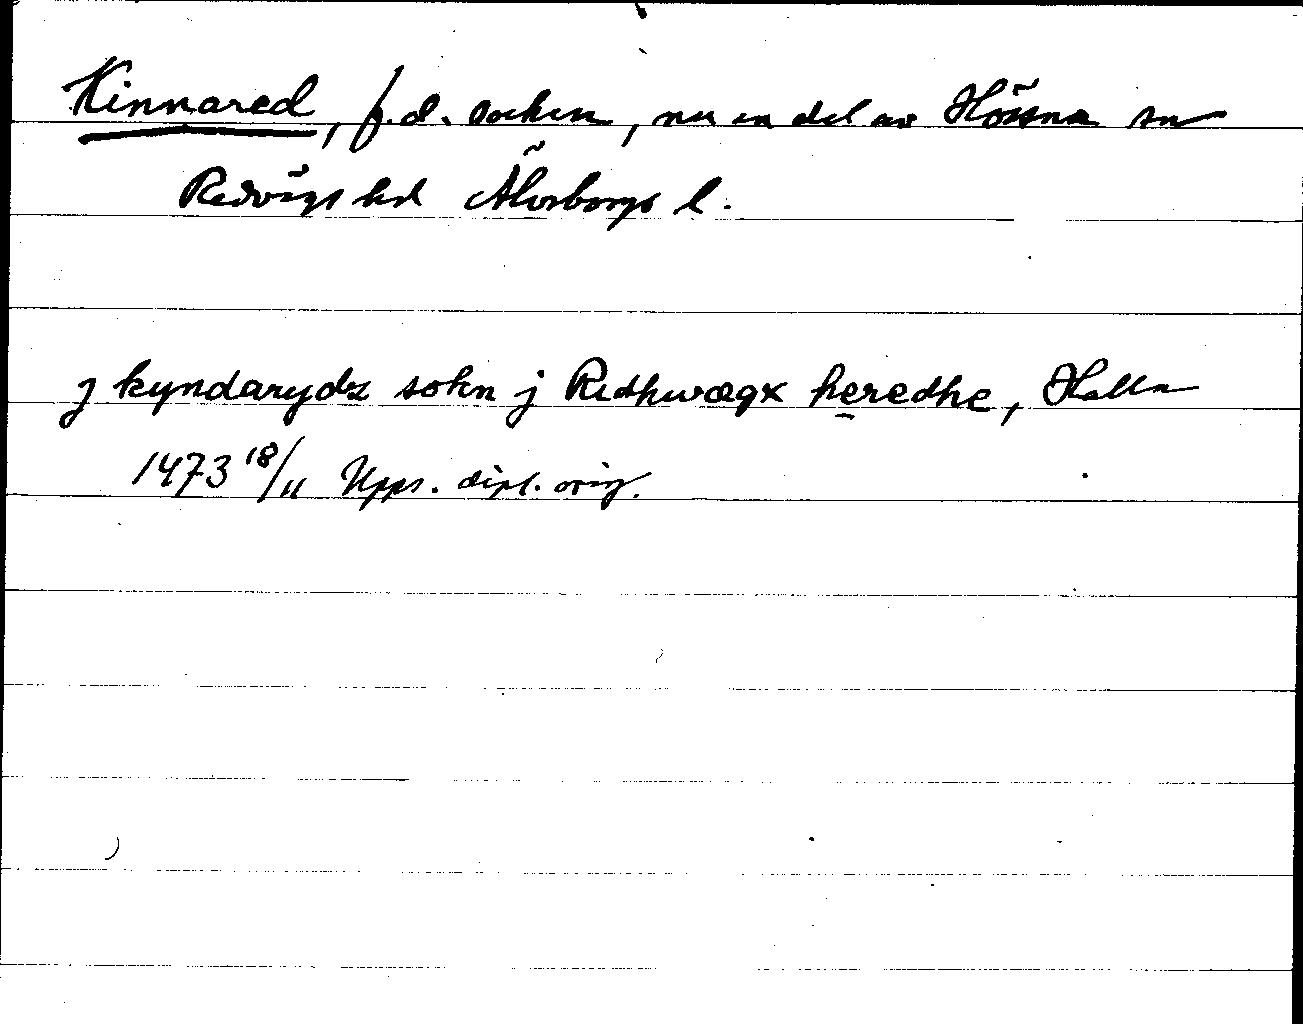 Kinnared, f.d. socken, nu en del av Hössna sn
Redvägs hd Älvsborgs l.
j kyndarydz sokn j Redhwægx heredhe, Halla
1473 18/11 Upps. dipl. orig.